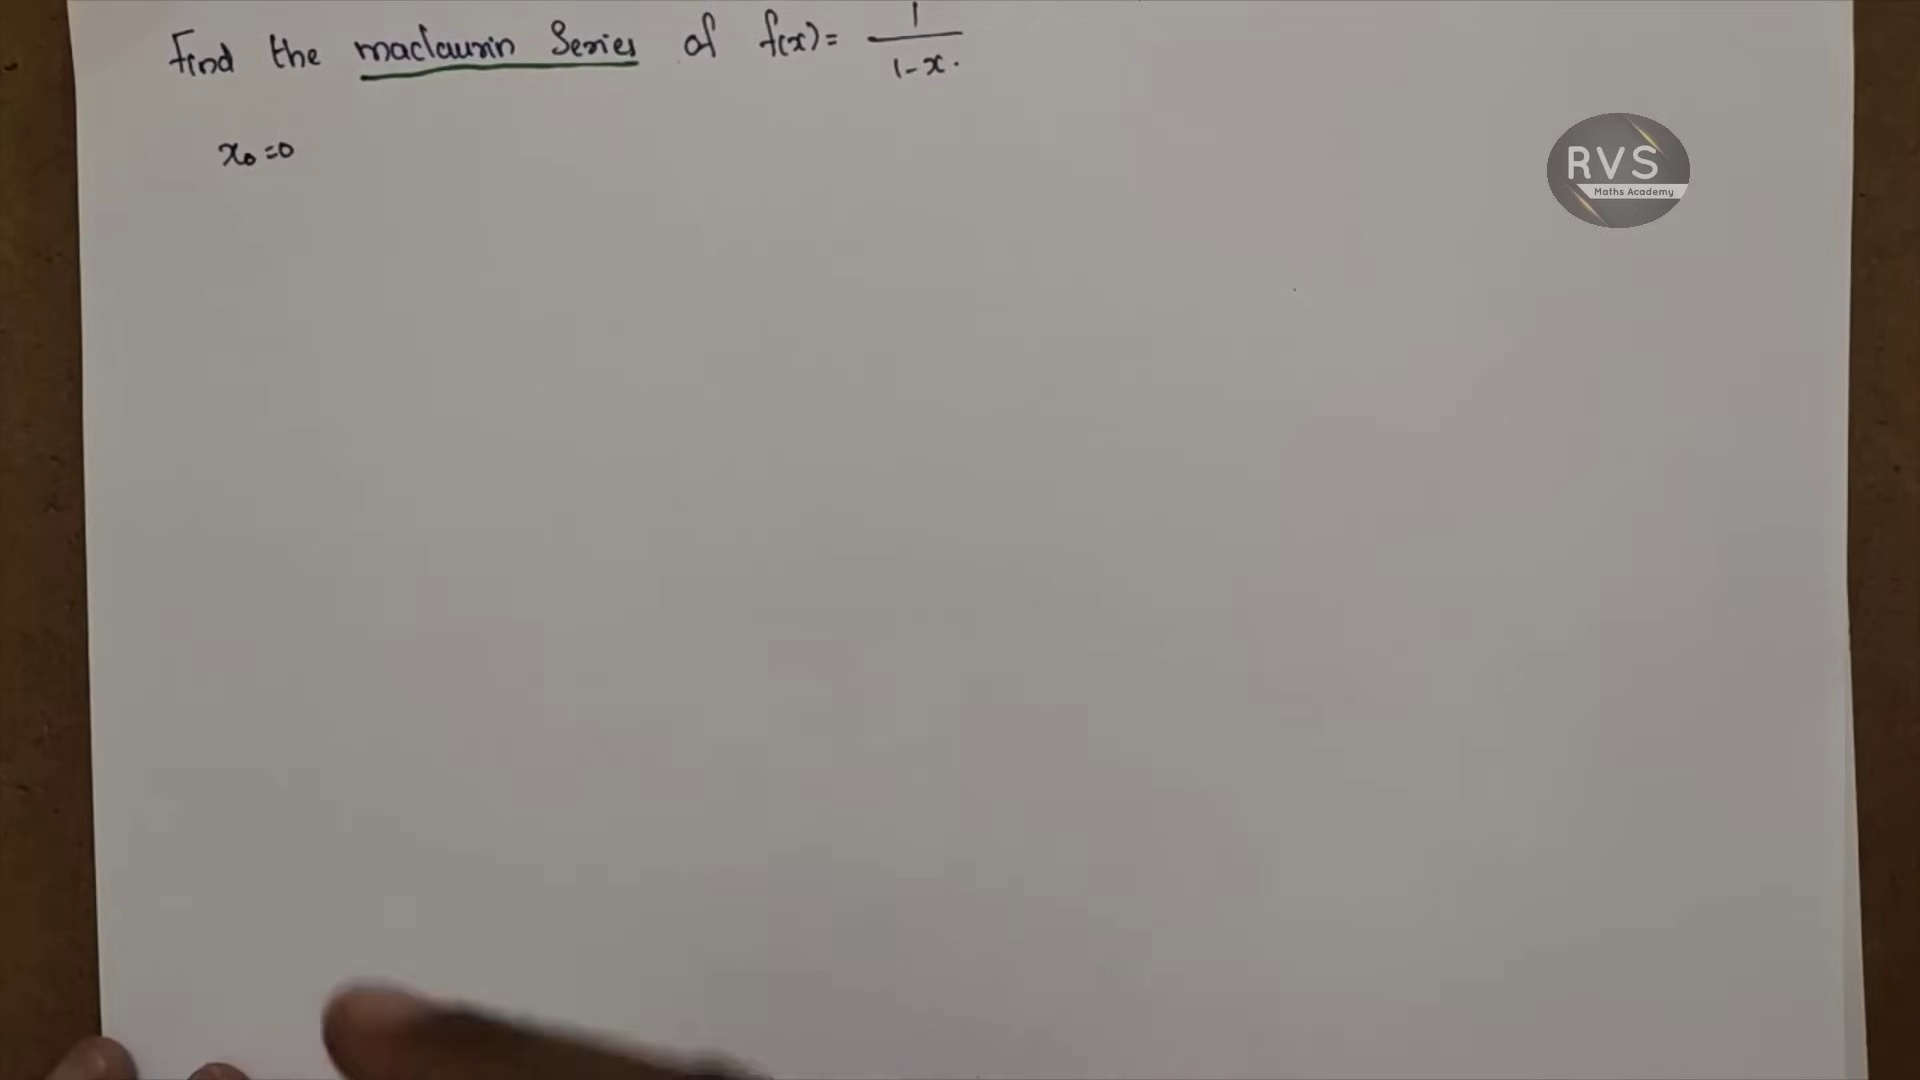 Find the maclaurin Series of f(x)= 1/1-x.
x₀=0
RVS
Maths Academy